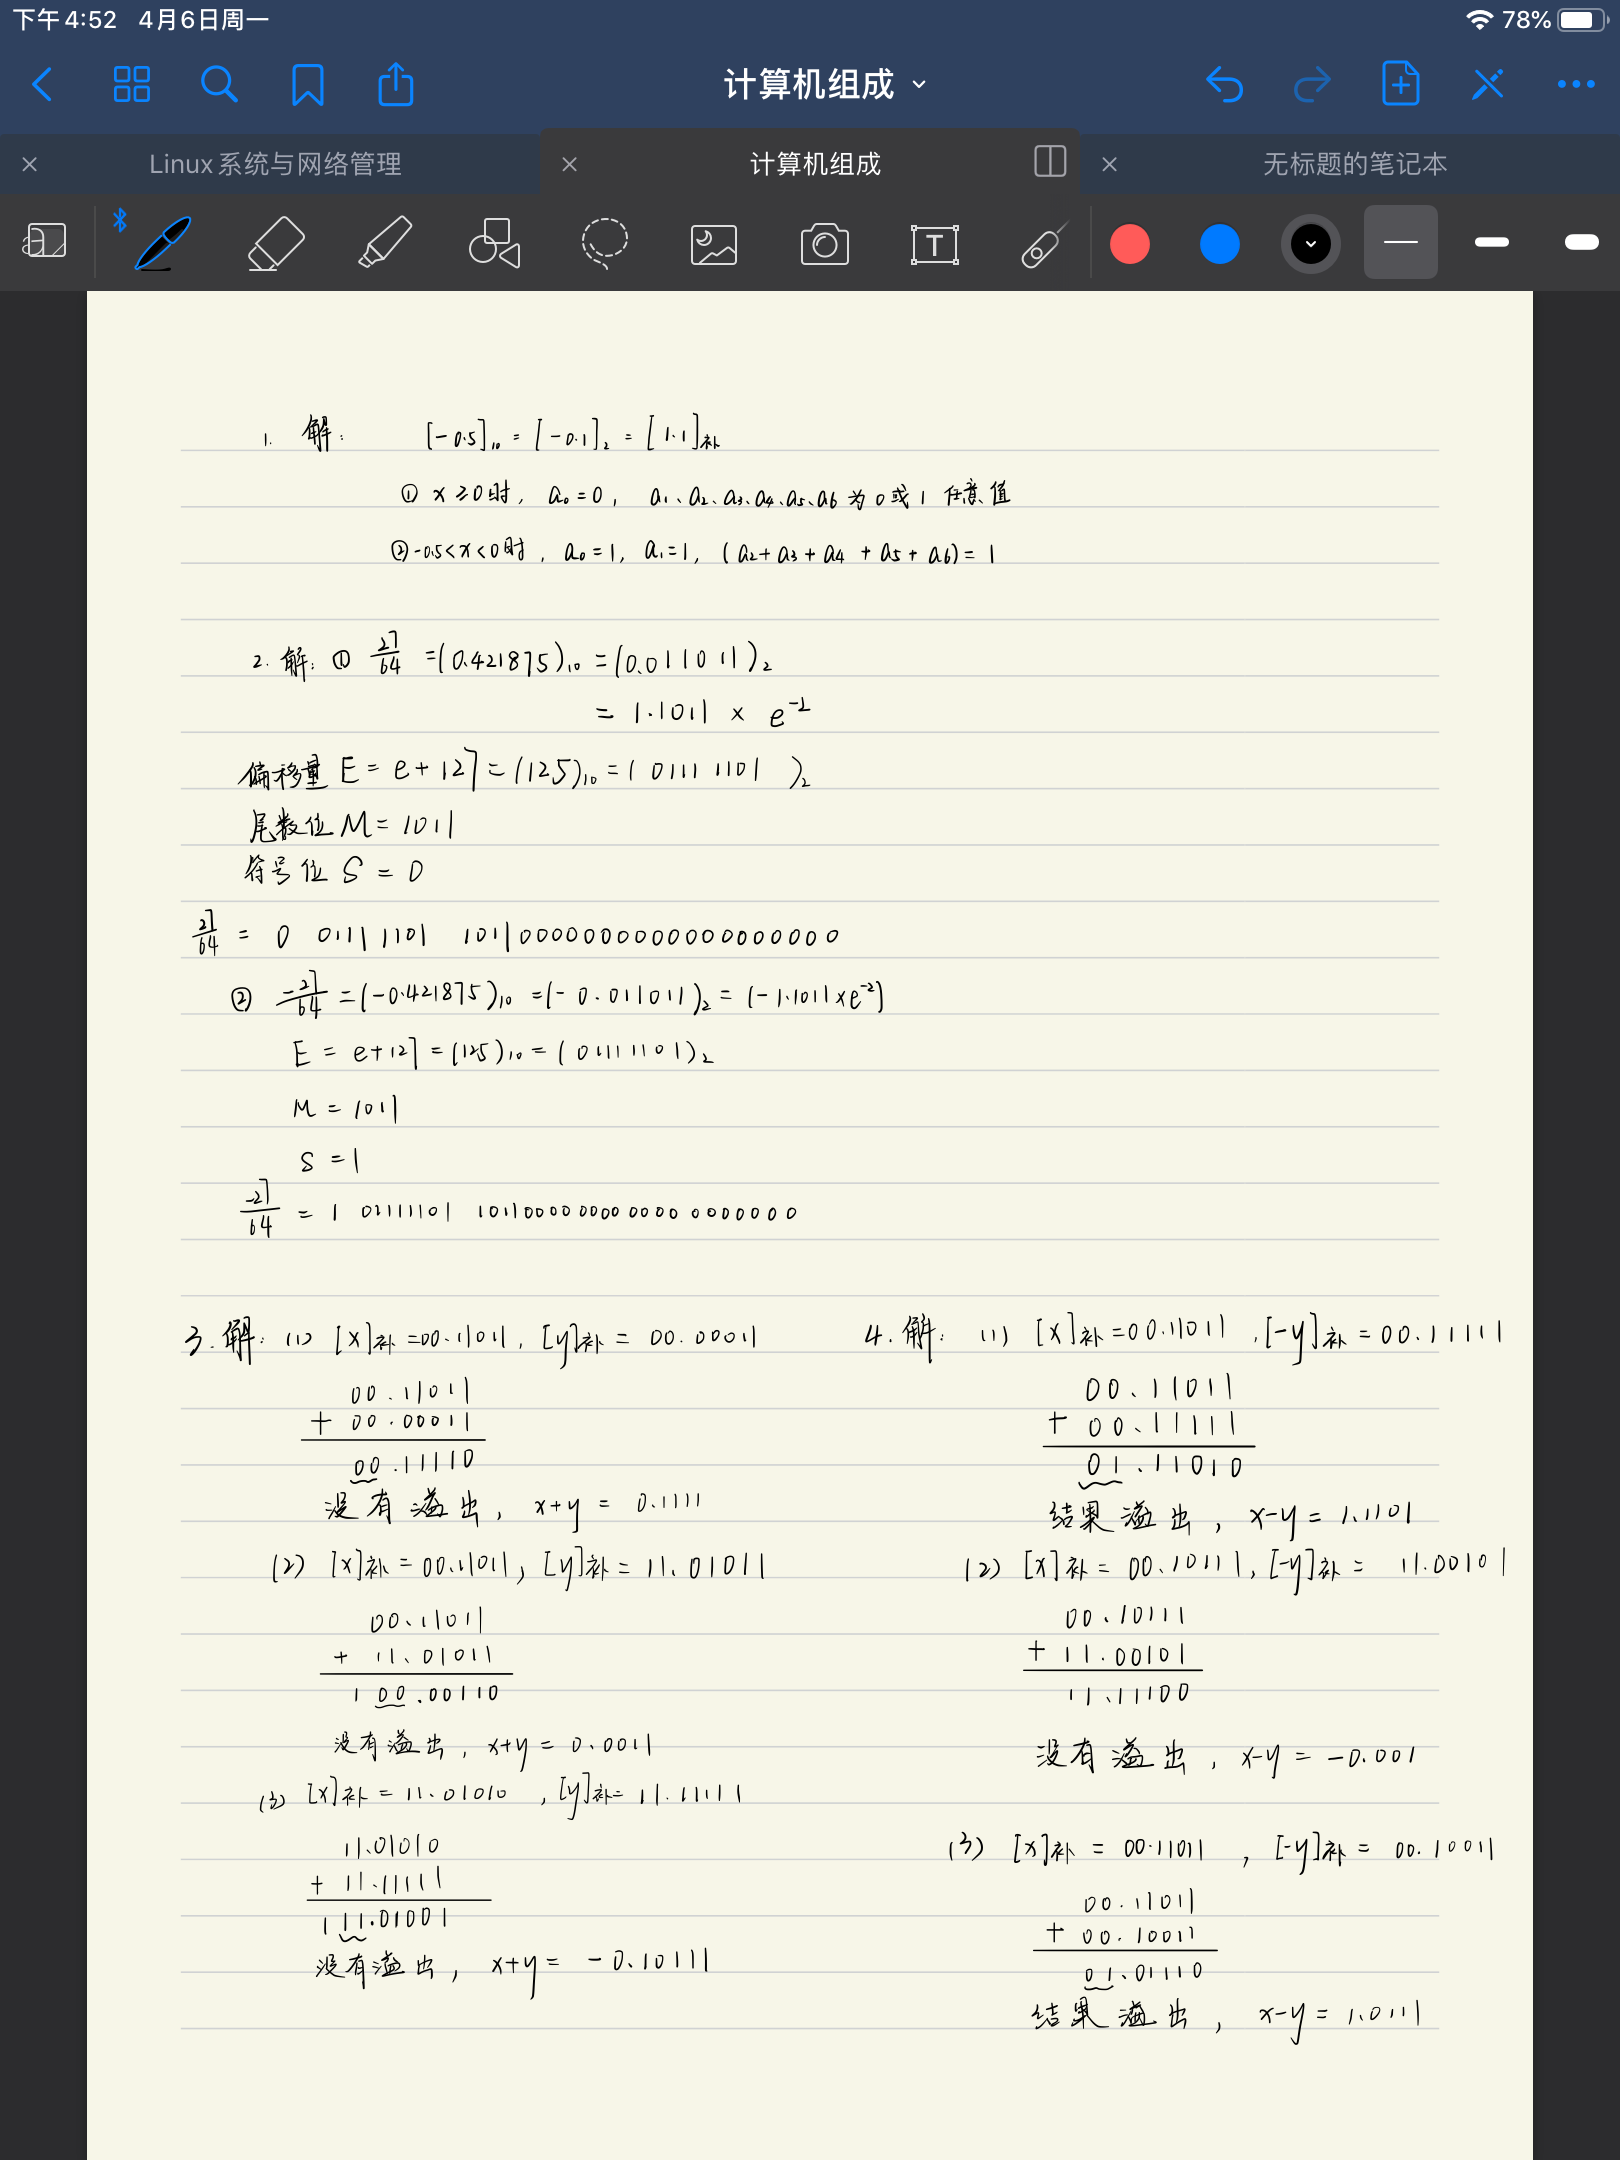 下午4:52 4月6日周一 78%
计算机组成
Linux系统与网络管理 计算机组成 无标题的笔记本
1. 解: [-0.5]₁₀ = [-0.1]₂ = [1.1]补
① x≥0时, a₀=0, a₁、a₂、a₃、a₄、a₅、a₆ 为0或1 任意值
② -0.5<x<0时, a₀=1, a₁=1, (a₂+a₃+a₄+a₅+a₆)=1
2. 解: ① 27/64 =(0.421875)₁₀ =(0.011011)₂
= 1.1011 × e⁻²
偏移量 E = e+127 = (125)₁₀ = (01111101)₂
尾数位 M = 1011
符号位 S = 0
27/64 = 0 01111101 10110000000000000000000
② -27/64 =(-0.421875)₁₀ =(-0.011011)₂ = (-1.1011×e⁻²)
E = e+127 = (125)₁₀ = (01111101)₂
M = 1011
S = 1
-27/64 = 1 01111101 10110000000000000000000
3. 解: (1) [x]补=00.11011, [y]补= 00.00011
00.11011
+ 00.00011
00.11110
没有溢出, x+y = 0.1111
(2) [x]补=00.11011, [y]补=11.01011
00.11011
+ 11.01011
1 00.00110
没有溢出, x+y = 0.0011
(3) [x]补 = 11.01010, [y]补= 11.11111
11.01010
+ 11.11111
1 11.01001
没有溢出, x+y = -0.10111
4. 解: (1) [x]补=00.11011, [-y]补=00.11111
00.11011
+ 00.11111
01.11010
结果溢出, x-y = 1.1101
(2) [x]补= 00.10111, [-y]补= 11.00101
00.10111
+ 11.00101
11.11100
没有溢出, x-y = -0.001
(3) [x]补 = 00.11011, [-y]补= 00.10011
00.11011
+ 00.10011
01.01110
结果溢出, x-y = 1.0111